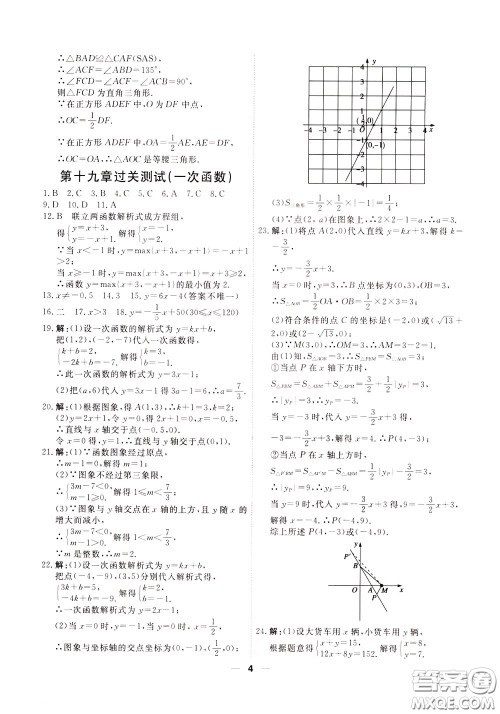 ∴△BAD≌△CAF(SAS),
∴∠ACF=∠ABD=135°,
∴∠FCD=∠ACF-∠ACB=90°,
则△FCD为直角三角形.
∵在正方形 ADEF 中,O为 DF 中点,
∴OC=1/2 DF.
∵在正方形 ADEF 中,OA=1/2 AE,AE=DF,
∴OC=OA,∴△AOC是等腰三角形.
第十九章过关测试(一次函数)
1.B 2.C 3.B 4.C 5.C 6.A 7.C 8.C
9.D 10.D 11.A
12.B 联立两函数解析式成方程组,
得{y=x+3, y=-x+1. 解得{x=-1, y=2.
∵当x<-1时,y=max{x+3,-x+1}=-x+1
>2;
当x≥-1时,y=max{x+3,-x+1}=x+3≥2,
∴函数 y=max{x+3,-x+1}的最小值为2.
13.x≠-0.5 14.3 15.y=6x-4(答案不唯一)
16.二 17.x>3 18.y=-1/5 x+50(30≤x≤120)
19.解:(1)设一次函数的解析式为y=kx+b,
把(1,2),(-2,-7)代入一次函数得,
{k+b=2, -2k+b=-7. 解得{k=3, b=-1.
∴此一次函数的解析式为y=3x-1;
(2)把(a,6)代入 y=3x-1得3a-1=6,∴a=7/3.
20.解:(1)根据图象,得A(1,3),∴k=2;
(2)y=2x+1,令 y=0,得2x+1=0,
∴直线与 x 轴交于点(-0.5,0).
令x=0得y=1,∴直线与 y 轴交于点(0,1).
21.解:(1)∵函数图象经过原点,
∴m-1=0,解得m=1;
(2)∵图象不经过第二象限,
∴{3m-7<0, m-1≥0. 解得 1≤m<7/3;
(3)∵图象与 y 轴交点在 x 轴的上方,且 y 随 x 的
增大而减小,
∴{3m-7<0, m-1>0. 解得 1<m<7/3;
∵m是整数,∴m=2.
22.解:(1)设一次函数的解析式为y=kx+b,
把点(-4,-9),(3,5)分别代入解析式得,
{3k+b=5, -4k+b=-9. 解得{k=2, b=-1.
∴一次函数解析式为 y=2x-1;
(2)当x=0时,y=-1,当y=0时,x=1/2,
∴图象与坐标轴的交点坐标为(0,-1),(1/2,0);
y
4
3
2
1
(1/2,0)
-4 -3 -2 -1 0 1 2 3 4 x
(0,-1)
-2
-3
-4
(3)S三角形=1/2×1/2×|-1|=1/4;
(4)∵点(2,a)在图象上,∴2×2-1=a,∴a=3.
23.解:(1)将点A(2,0)代入直线y=kx+3,解得k=
-3/2,
∴y=-3/2 x+3.
当x=0时,y=3,∴B点坐标为(0,3),OB=3,
∴S△AOB=1/2 OA·OB=1/2×2×3=3;
(2)符合条件的点 C 的坐标是(-2,0)或(√13+
2,0)或(2-√13,0);
(3)∵M(3,0),∴OM=3,∴AM=3-2=1.
由(1)知,S△AOB=3,∴S△PBM=S△AOB=3;
①当点P在 x 轴下方时,
S△PBM=S△PAM+S△ABM=3/2+1/2|yP|=3,
∴|yP|=3,
当y=-3时,代入y=-3/2 x+3得,
-3=-3/2 x+3,解得x=4.∴P(4,-3);
②当点P在 x 轴上方时,
∴|yP|=9,
当y=9时,代入y=-3/2 x+3得,9=-3/2 x+3,
解得x=-4.∴P(-4,9).
综上所述 P(4,-3)或(-4,9).
y
P'
B
O A M x
P
24.解:(1)设大货车用 x 辆,小货车用 y 辆,
根据题意得{x+y=15, 12x+8y=152. 解得{x=8, y=7.
4
答案圈
MXQE.COM